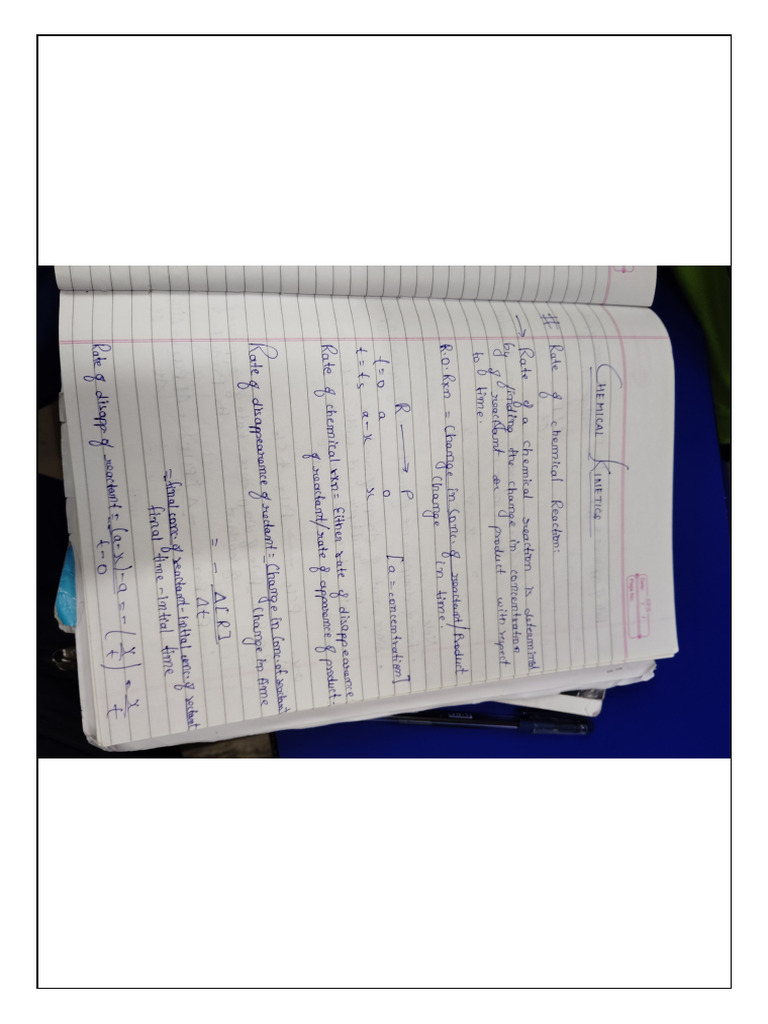 CHEMICAL KINETICS
# Rate of chemical Reaction:
→ Rate of a chemical reaction is determined
by finding the change in concentration
of reactant or product with respect
to time.
R.O.Rxn = Change in Conc. of reactant/Product
Change in time.
R ⟶ P
t=0 a 0 [a=concentration]
t=ts a-x x
Rate of chemical rxn = Either rate of disappearence
of reactant/rate of apparence of product.
Rate of disappearence of reactant = Change in Conc. of reactant
Change in time
= - Δ[R]
Δt
= final conc. of reactant - initial conc. of reactant
final time - initial time
Rate of disapp. of reactant = (a-x)-a = -(x) = x
t-0 (t) t